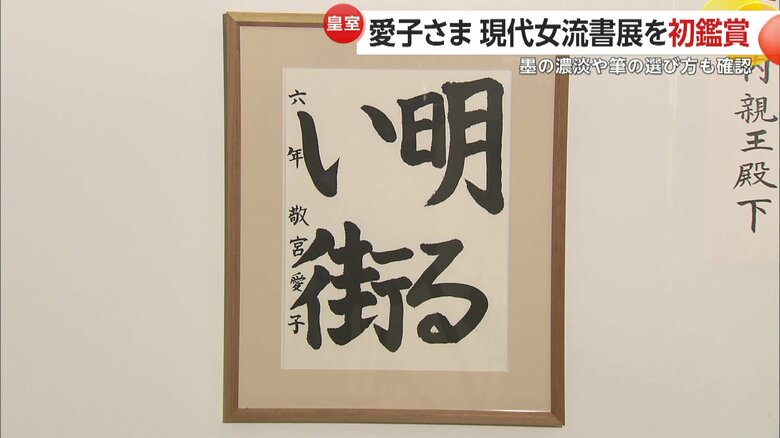 皇室
愛子さま 現代女流書展を初鑑賞
墨の濃淡や筆の選び方も確認
内親王殿下
明る
い街
六年 敬宮愛子